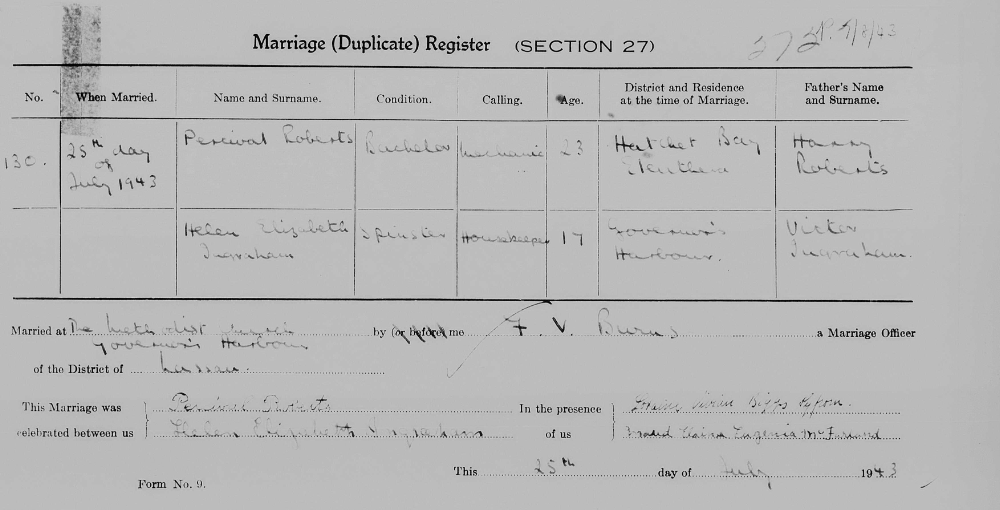 Marriage (Duplicate) Register (SECTION 27)
No. When Married. Name and Surname. Condition. Calling. Age. District and Residence at the time of Marriage. Father's Name and Surname.
25th day of July 1943 Percival Roberts Bachelor Mechanic 23 Hatchet Bay Eleuthera Harry Roberts
Helen Elizabeth Ingraham Spinster Housekeeper 17 Governor's Harbour. Victor Ingraham.
Married at The Methodist Church by (or before) me F. V. Burns a Marriage Officer
Governor's Harbour
of the District of Nassau.
This Marriage was Percival Roberts In the presence
celebrated between us Helen Elizabeth Ingraham of us Maud Eugenia
This 25th day of July 1943
Form No. 9.